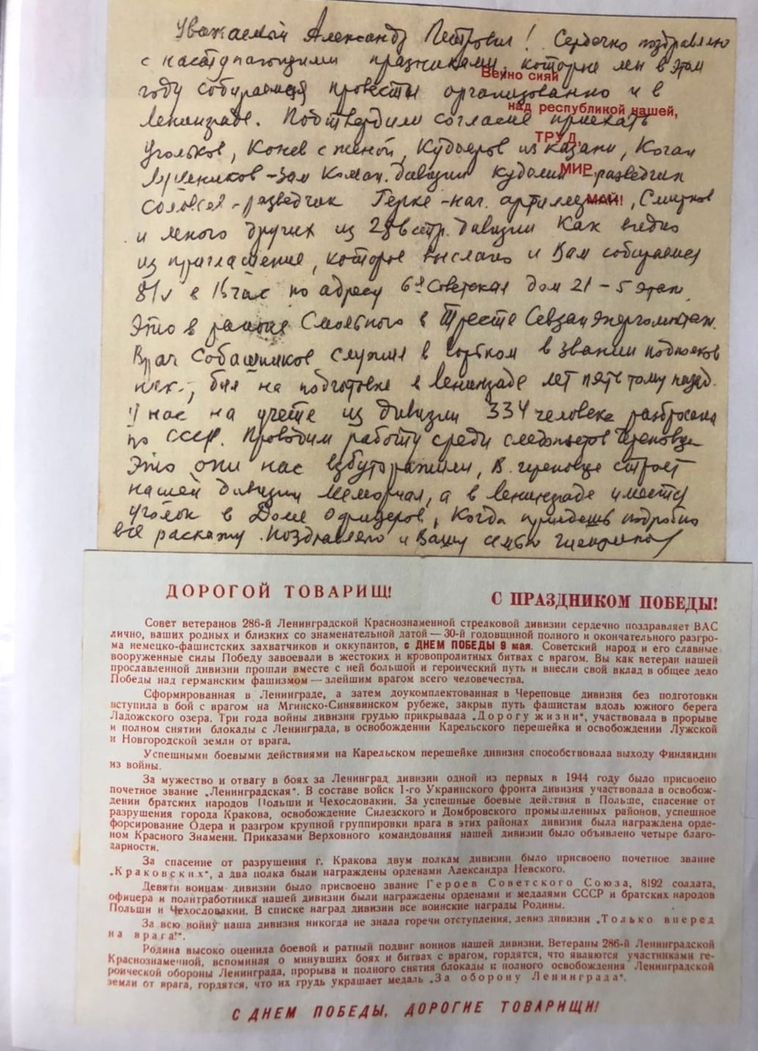 Уважаемый Александр Петрович! Сердечно поздравляю
с наступающими празниками, которые мы в этом
Вечно сияй
году собираемся провести организованно и в
над республикой нашей,
Ленинграде. Подтвердили согласие приехать
ТРУД,
Угольков, Конев с женой, Кудояров из Казани, Коган
МИР,
зам коман. дивизии разведчик
МАЙ!
разведчик Герке - нач. артиллерии, Смирнов
и много других из дивизии Как видно
из приглашения, которое выслано и Вам собираемся
в 15 час по адресу 6я Советская дом 21 - 5 этаж.
Это в районе Смольного в Тресте Севзапэнергомонтаж.
Врач Собашников служил в в звании подполков
был на подготовке в Ленинграде лет пять тому назад.
У нас на учете из дивизии 334 человека разбросаны
по СССР. Проводим работу среди следопытов Череповца
Это они нас взбуторажили, В Череповце строят
нашей дивизии мемориал, а в Ленинграде имеется
уголок в Доме Офицеров, Когда приедешь подробно
все расскажу. Поздравляю и Вашу семью
ДОРОГОЙ ТОВАРИЩ!
С ПРАЗДНИКОМ ПОБЕДЫ!
Совет ветеранов 286-й Ленинградской Краснознаменной стрелковой дивизии сердечно поздравляет ВАС
лично, ваших родных и близких со знаменательной датой — 30-й годовщиной полного и окончательного разгро-
ма немецко-фашистских захватчиков и оккупантов, с ДНЕМ ПОБЕДЫ 9 мая. Советский народ и его славные
вооруженные силы Победу завоевали в жестоких и кровопролитных битвах с врагом. Вы как ветеран нашей
прославленной дивизии прошли вместе с ней большой и героический путь и внесли свой вклад в общее дело
Победы над германским фашизмом — злейшим врагом всего человечества.
Сформированная в Ленинграде, а затем доукомплектованная в Череповце дивизия без подготовки
вступила в бой с врагом на Мгинско-Синявинском рубеже, закрыв путь фашистам вдоль южного берега
Ладожского озера. Три года войны дивизия грудью прикрывала „Дорогу жизни", участвовала в прорыве
и полном снятии блокады с Ленинграда, в освобождении Карельского перешейка и освобождении Лужской
и Новгородской земли от врага.
Успешными боевыми действиями на Карельском перешейке дивизия способствовала выходу Финляндии
из войны.
За мужество и отвагу в боях за Ленинград дивизии одной из первых в 1944 году было присвоено
почетное звание „Ленинградская". В составе войск 1-го Украинского фронта дивизия участвовала в освобож-
дении братских народов Польши и Чехословакии. За успешные боевые действия в Польше, спасение от
разрушения города Кракова, освобождение Силезского и Домбровского промышленных районов, успешное
форсирование Одера и разгром крупной группировки врага в этих районах дивизия была награждена орде-
ном Красного Знамени. Приказами Верховного командования нашей дивизии было объявлено четыре благо-
дарности.
За спасение от разрушения г. Кракова двум полкам дивизии было присвоено почетное звание
„Краковских", а два полка были награждены орденами Александра Невского.
Девяти воинам дивизии было присвоено звание Героев Советского Союза, 8192 солдата,
офицера и политработника нашей дивизии были награждены орденами и медалями СССР и братских народов
Польши и Чехословакии. В списке наград дивизии все воинские награды Родины.
За всю войну наша дивизия никогда не знала горечи отступления, девиз дивизии „Только вперед
на врага!".
Родина высоко оценила боевой и ратный подвиг воинов нашей дивизии. Ветераны 286-й Ленинградской
Краснознаменной, вспоминая о минувших боях и битвах с врагом, гордятся, что являются участниками ге-
роической обороны Ленинграда, прорыва и полного снятия блокады и полного освобождения Ленинградской
земли от врага, гордятся, что их грудь украшает медаль „За оборону Ленинграда".
С ДНЕМ ПОБЕДЫ, ДОРОГИЕ ТОВАРИЩИ!